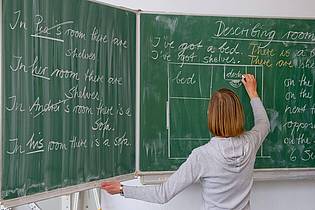 In Pia's room there are
shelves
In her room there are
shelves
In André's room there is a
sofa.
In his room there is a sofa.
Describing room
I've got a bed. There is a b
I've got shelves. There are she
bed
desk
on the
on the
next t
opposi
on the